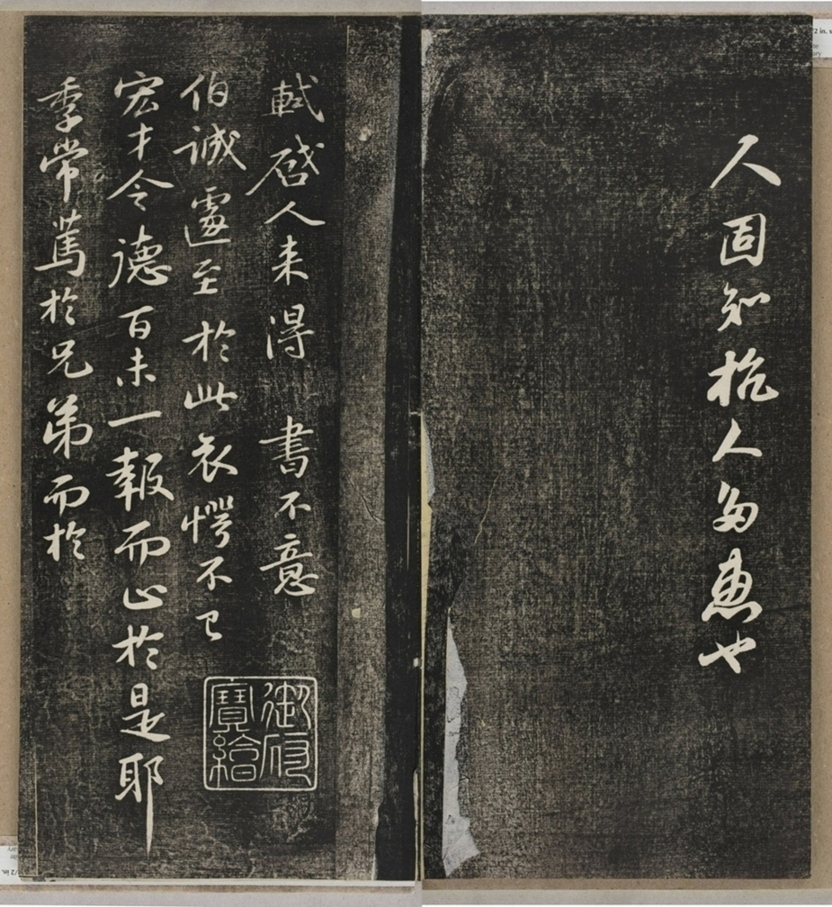 人固知杭人多惠也
軾啓人来得書不意
伯誠遽至於此哀愕不已
宏才令德百未一報而止於是耶
季常篤於兄弟而於
御府
寶繪